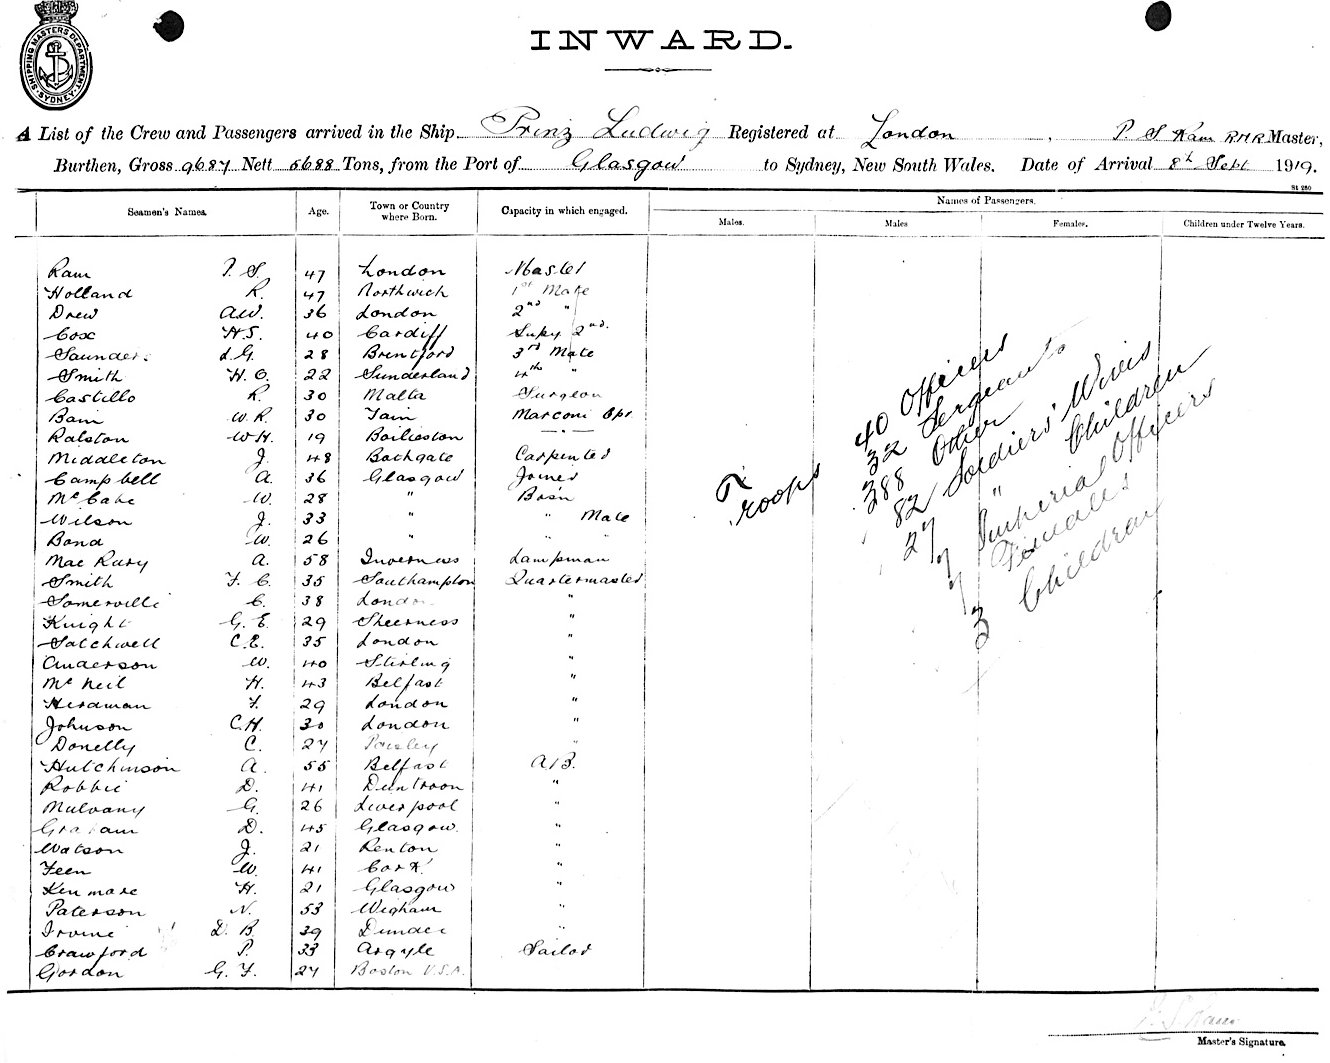 SHIPPING MASTERS DEPARTMENT SYDNEY
INWARD.
A List of the Crew and Passengers arrived in the Ship Prinz Ludwig Registered at London, P. S Ram RNR Master,
Burthen, Gross 9687 Nett 5688 Tons, from the Port of Glasgow to Sydney, New South Wales. Date of Arrival 8th Sept 1919.
St 250
Seamen's Names. Age. Town or Country where Born. Capacity in which engaged. Names of Passengers.
Males. Males Females. Children under Twelve Years.
Ram P. S. 47 London Master
Holland R. 47 Northwich 1st Mate
Drew A.W. 36 London 2nd "
Cox H.S. 40 Cardiff Supy 2nd.
Saunders L.G. 28 Brentford 3rd Mate
Smith H. O. 22 Sunderland 4th "
Castillo R. 30 Malta Surgeon
Bain W. R. 30 Tain Marconi Opr
Ralston W H. 19 Bailieston - " -
Middleton J. 48 Bathgate Carpenter
Campbell A. 36 Glasgow Joiner
McCabe W. 28 " Bos'n
Wilson J. 33 " " Mate
Bond W. 26 " " "
Mac Rury A. 58 Inverness Lampman
Smith F. C. 35 Southampton Quartermaster
Somerville C. 38 London "
Knight G. E. 29 Sheerness "
Satchwell C.E. 35 London "
Anderson W. 40 Stirling "
McNeil H. 43 Belfast "
Herdman F. 29 London "
Johnson C.H. 30 London "
Donelly C. 27 Paisley "
Hutchinson A. 55 Belfast A/B.
Robbie D. 41 Duntroon "
Mulvany G. 26 Liverpool "
Graham D. 45 Glasgow. "
Watson J. 21 Renton "
Feen W. 41 Cork "
Kenmare H. 21 Glasgow "
Paterson N. 53 Wigham "
Irvine D. B. 39 Dundee "
Crawford P. 33 Argyle Sailor
Gordon G. F. 27 Boston U.S.A.
Troops
40 Officers
32 Sergeants
388 Other
82 Soldiers' Wives
27 " Children
7 Imperial Officers
7 Females
3 Children
P. S. Ram
Master's Signature.